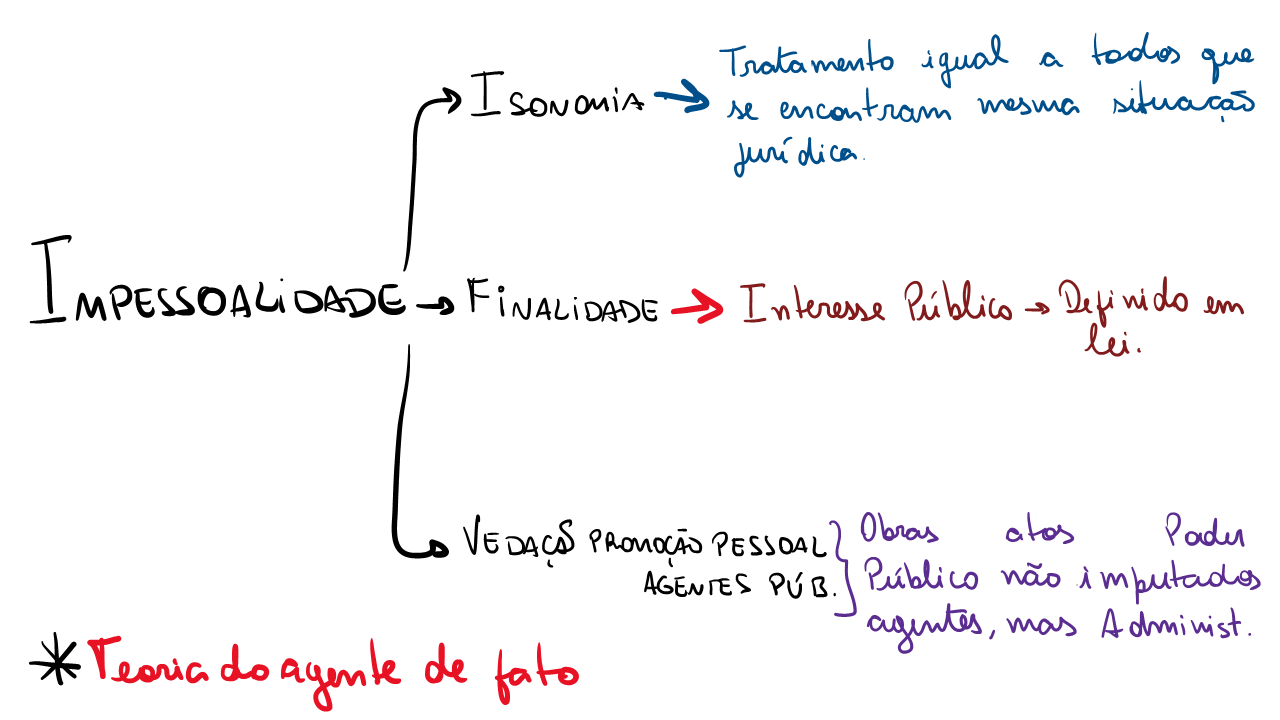 ISONOMIA → Tratamento igual a todos que
se encontram mesma situação
jurídica.
IMPESSOALIDADE → FINALIDADE → Interesse Público → Definido em
lei.
VEDAÇÃO PROMOÇÃO PESSOAL
AGENTES PÚB.
Obras atos Poder
Público não imputados
agentes, mas Administ.
* Teoria do agente de fato